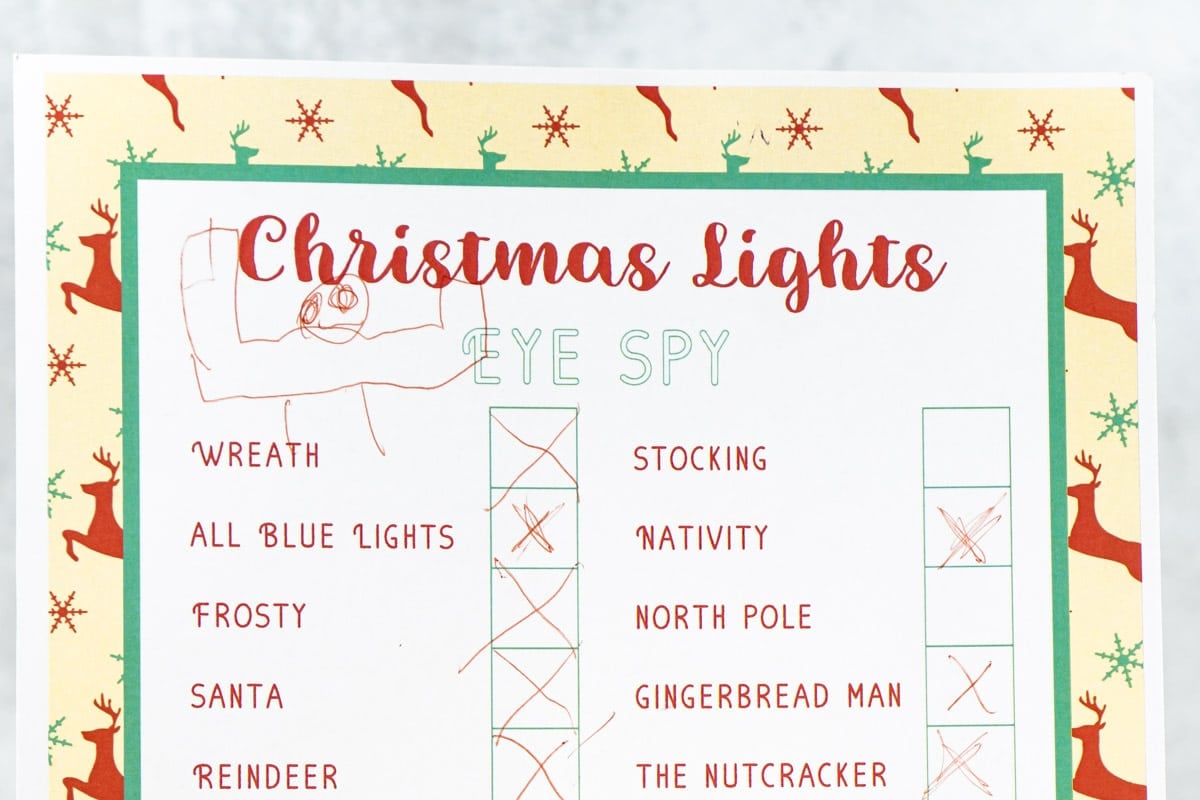 Christmas Lights
EYE SPY
WREATH
ALL BLUE LIGHTS
FROSTY
SANTA
REINDEER
STOCKING
NATIVITY
NORTH POLE
GINGERBREAD MAN
THE NUTCRACKER